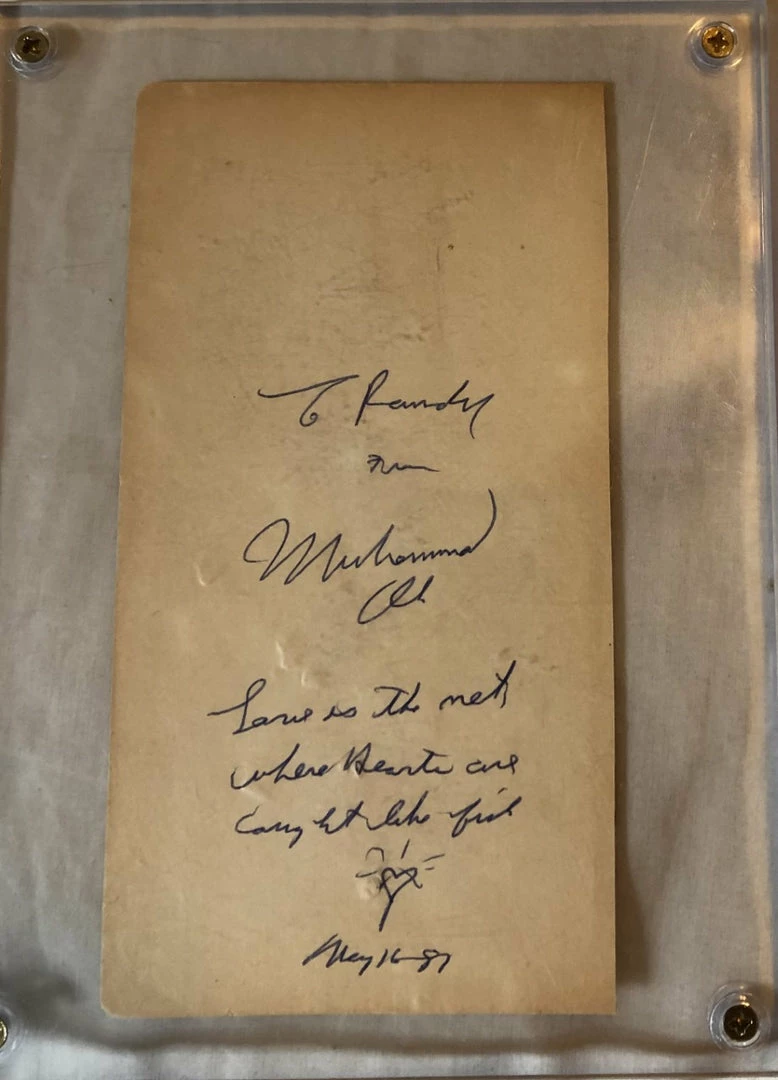 To Randy
From
Muhammad
Ali
Love is the net
where Hearts are
caught like fish
May 16-87